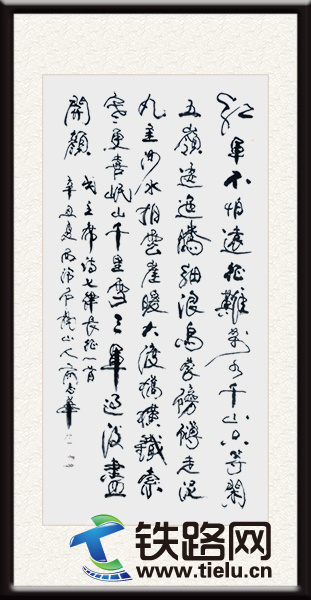 紅軍不怕遠征難萬水千山只等閑
五嶺逶迤騰細浪烏蒙磅礴走泥
丸金沙水拍雲崖暖大渡橋橫鐵索
寒更喜岷山千里雪三軍過後盡
開顏
毛主席詩七律長征一首
辛丑夏 山人 志華
铁路网
www.tielu.cn